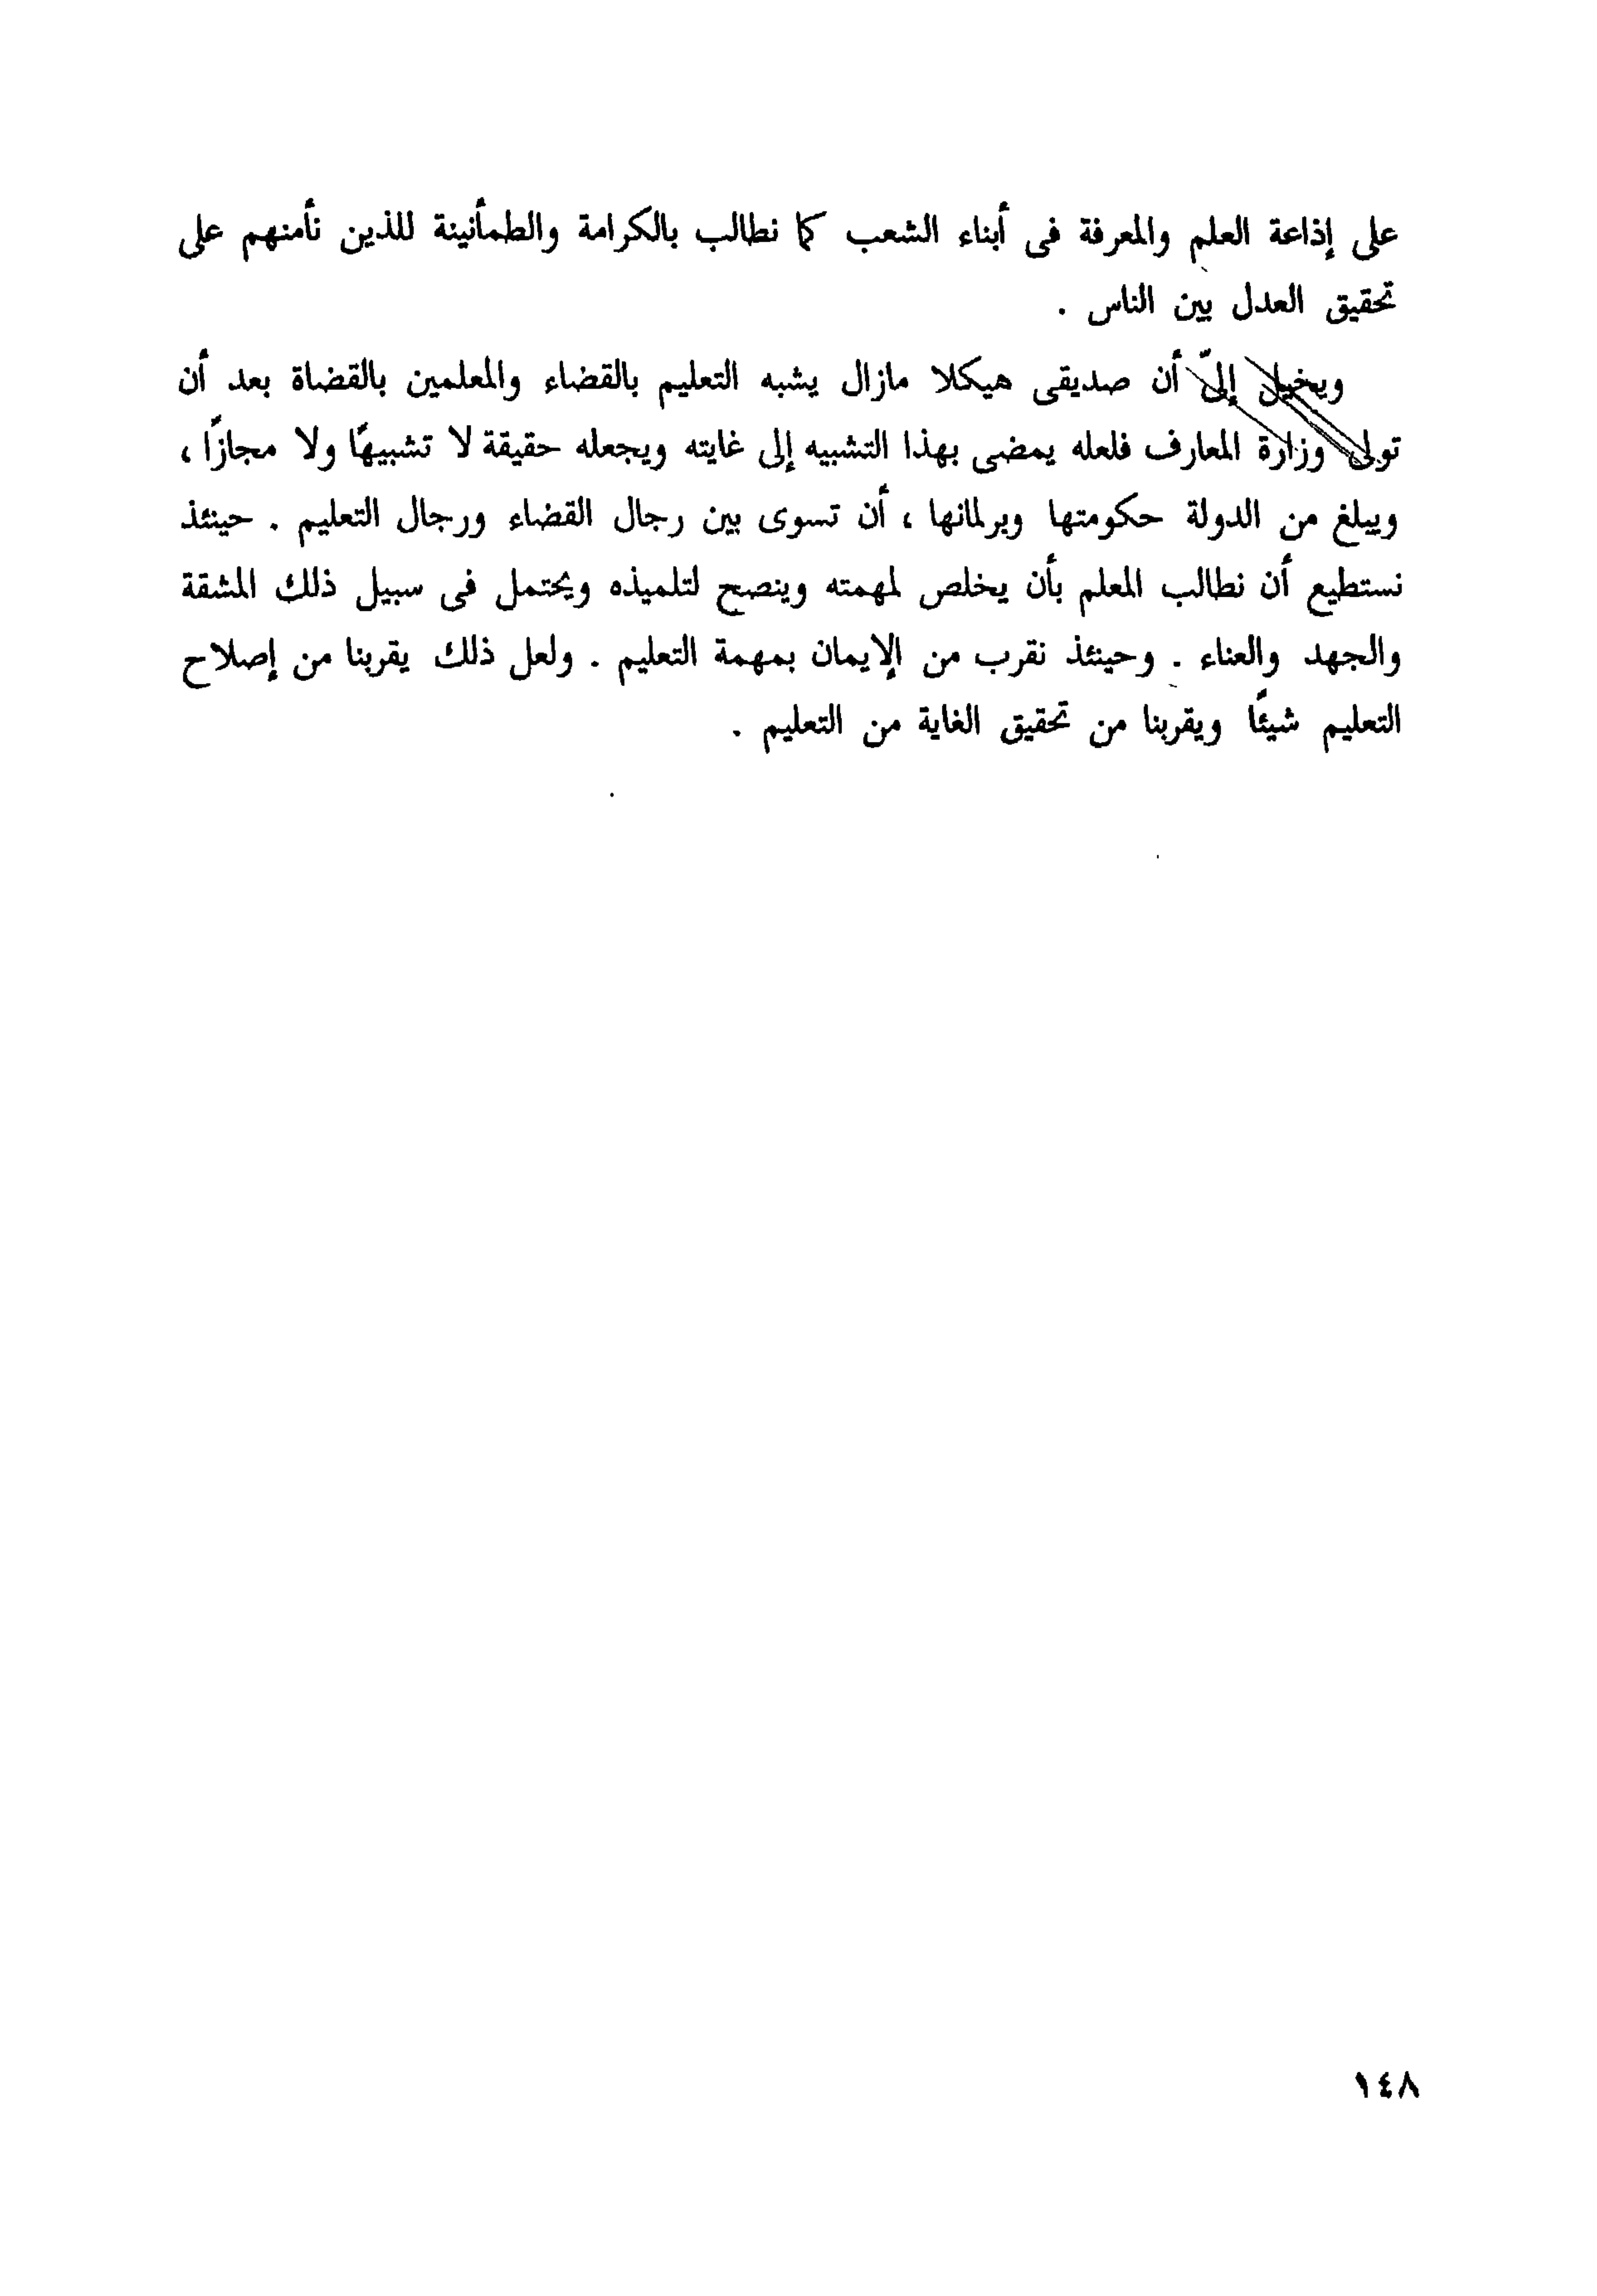 على إذاعة العلم والمعرفة فى أبناء الشعب كما نطالب بالكرامة والطمأنينة للذين نأمنهم على
تحقيق العدل بين الناس .
ويخيل إلىّ أن صديقى هيكلا مازال يشبه التعليم بالقضاء والمعلمين بالقضاة بعد أن
تولى وزارة المعارف فلعله يمضى بهذا التشبيه إلى غايته ويجعله حقيقة لا تشبيهًا ولا مجازًا ،
ويبلغ من الدولة حكومتها وبرلمانها ، أن تسوى بين رجال القضاء ورجال التعليم . حينئذ
نستطيع أن نطالب المعلم بأن يخلص لمهمته وينصح لتلميذه ويحتمل فى سبيل ذلك المشقة
والجهد والعناء . وحينئذ نقرب من الإيمان بمهمة التعليم . ولعل ذلك يقربنا من إصلاح
التعليم شيئًا ويقربنا من تحقيق الغاية من التعليم .
١٤٨